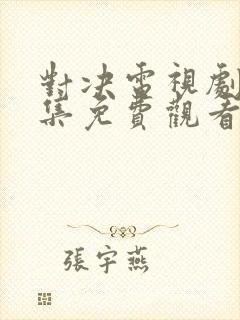 對决電視劇
集免費觀看
張宇燕